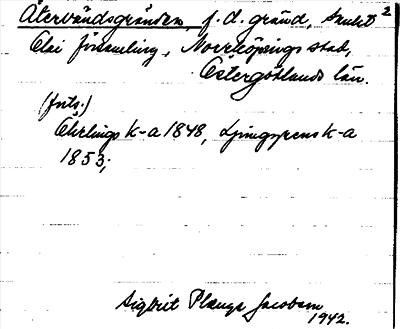 Återvändsgränden, f.d. gränd, 2
Olai församling, Norrköpings stad,
Östergötlands län.
(forts.)
Öhrlings k-a 1848, Ljunggrens k-a
1853;
Sigbrit Plænge Jacobson
1942.